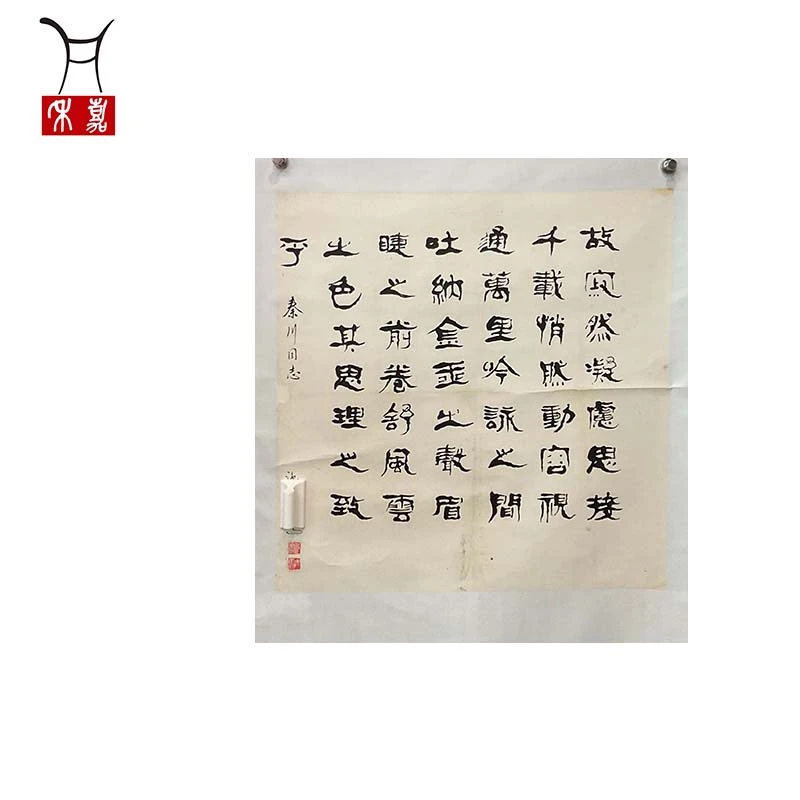 故寂然凝慮思接
千載悄然動容視
通萬里吟詠之間
吐納金之聲眉
睫之前卷舒風雲
之色其思理之致
乎
秦川同志
嘉